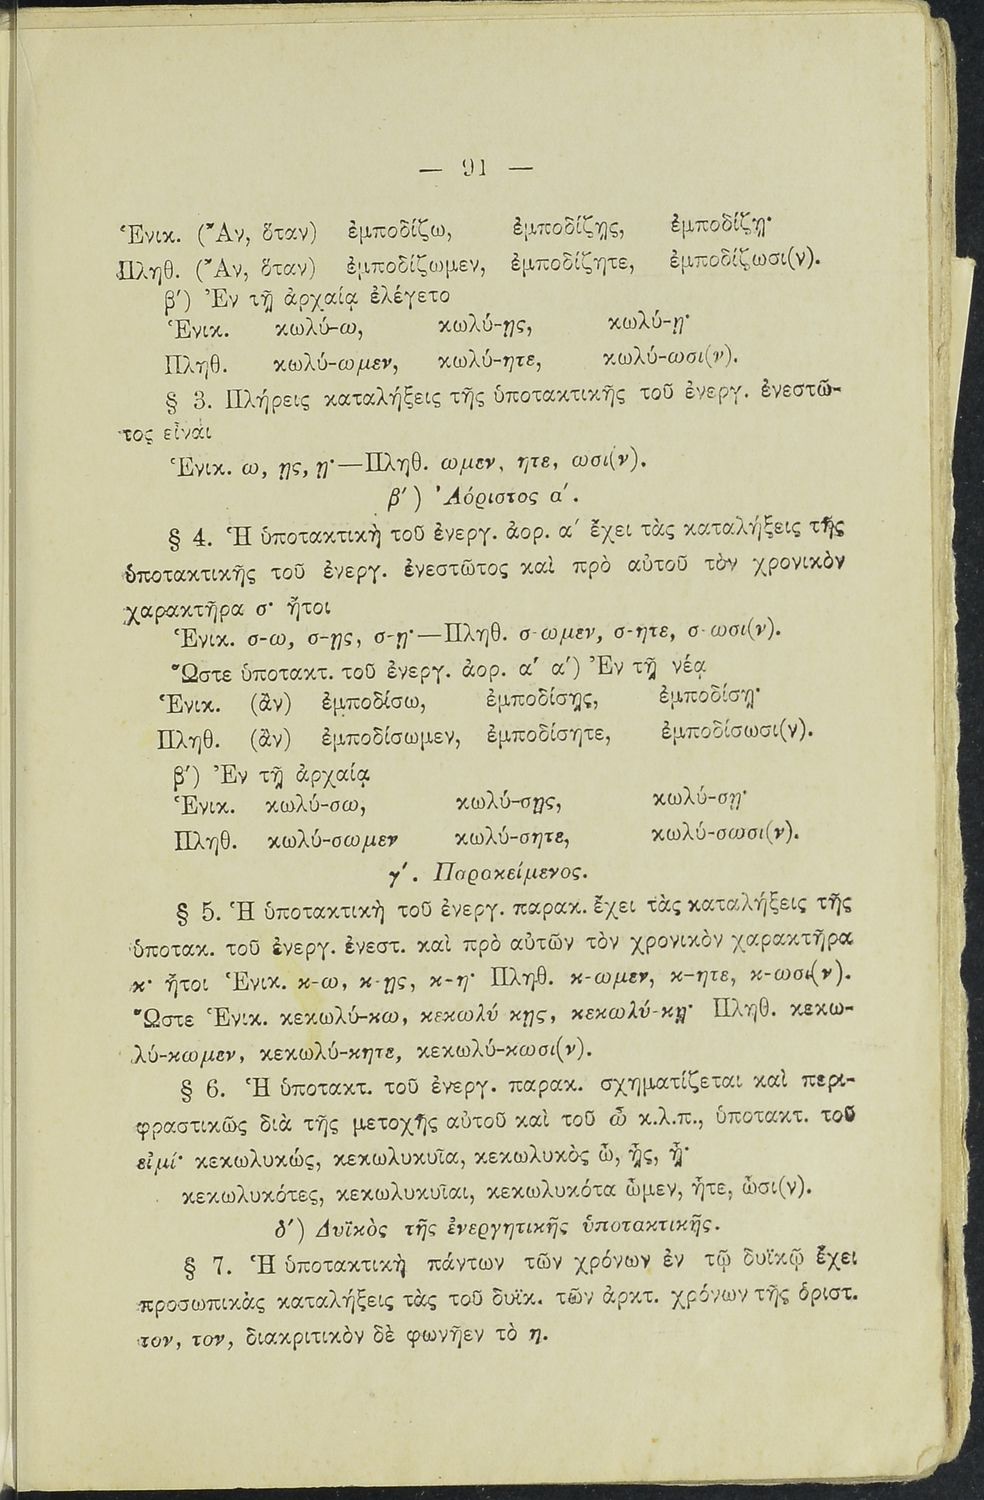 — 91 —
Ἑνικ. (Ἂν, ὅταν) ἐμποδίζω, ἐμποδίζῃς, ἐμποδίζῃ·
Πληθ. (Ἂν, ὅταν) ἐμποδίζωμεν, ἐμποδίζητε, ἐμποδίζωσι(ν).
β′) Ἐν τῇ ἀρχαίᾳ ἐλέγετο
Ἑνικ. κωλύ-ω, κωλύ-ῃς, κωλύ-ῃ·
Πληθ. κωλύ-ωμεν, κωλύ-ητε, κωλύ-ωσι(ν).
§ 3. Πλήρεις καταλήξεις τῆς ὑποτακτικῆς τοῦ ἐνεργ. ἐνεστῶ-
τος εἶναι
Ἑνικ. ω, ῃς, ῃ·—Πληθ. ωμεν, ητε, ωσι(ν).
β′) Ἀόριστος α′.
§ 4. Ἡ ὑποτακτικὴ τοῦ ἐνεργ. ἀορ. α′ ἔχει τὰς καταλήξεις τῆς
ὑποτακτικῆς τοῦ ἐνεργ. ἐνεστῶτος καὶ πρὸ αὐτοῦ τὸν χρονικὸν
χαρακτῆρα σ· ἤτοι
Ἑνικ. σ-ω, σ-ῃς, σ-ῃ·—Πληθ. σ-ωμεν, σ-ητε, σ-ωσι(ν).
Ὥστε ὑποτακτ. τοῦ ἐνεργ. ἀορ. α′ α′) Ἐν τῇ νέᾳ
Ἑνικ. (ἂν) ἐμποδίσω, ἐμποδίσῃς, ἐμποδίσῃ·
Πληθ. (ἂν) ἐμποδίσωμεν, ἐμποδίσητε, ἐμποδίσωσι(ν).
β′) Ἐν τῇ ἀρχαίᾳ
Ἑνικ. κωλύ-σω, κωλύ-σῃς, κωλύ-σῃ·
Πληθ. κωλύ-σωμεν κωλύ-σητε, κωλύ-σωσι(ν).
γ′. Παρακείμενος.
§ 5. Ἡ ὑποτακτικὴ τοῦ ἐνεργ. παρακ. ἔχει τὰς καταλήξεις τῆς
ὑποτακ. τοῦ ἐνεργ. ἐνεστ. καὶ πρὸ αὐτῶν τὸν χρονικὸν χαρακτῆρα
κ· ἤτοι Ἑνικ. κ-ω, κ-ῃς, κ-η· Πληθ. κ-ωμεν, κ-ητε, κ-ωσι(ν).
Ὥστε Ἑνικ. κεκωλύ-κω, κεκωλύ κῃς, κεκωλύ-κῃ· Πληθ. κεκω-
λύ-κωμεν, κεκωλύ-κητε, κεκωλύ-κωσι(ν).
§ 6. Ἡ ὑποτακτ. τοῦ ἐνεργ. παρακ. σχηματίζεται καὶ περι-
φραστικῶς διὰ τῆς μετοχῆς αὐτοῦ καὶ τοῦ ὦ κ.λ.π., ὑποτακτ. τοῦ
εἰμί· κεκωλυκώς, κεκωλυκυῖα, κεκωλυκὸς ὦ, ᾖς, ᾖ·
κεκωλυκότες, κεκωλυκυῖαι, κεκωλυκότα ὦμεν, ἦτε, ὦσι(ν).
δ′) Δυϊκὸς τῆς ἐνεργητικῆς ὑποτακτικῆς.
§ 7. Ἡ ὑποτακτικὴ πάντων τῶν χρόνων ἐν τῷ δυϊκῷ ἔχει
προσωπικὰς καταλήξεις τὰς τοῦ δυϊκ. τῶν ἀρκτ. χρόνων τῆς ὁριστ.
τον, τον, διακριτικὸν δὲ φωνῆεν τὸ η.